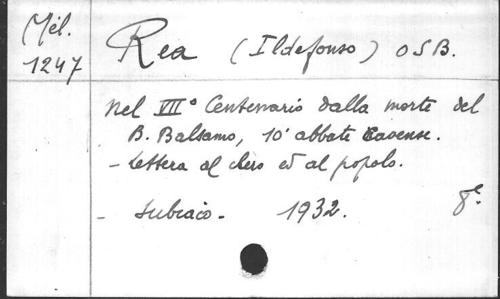 Mél.
1247
Rea (Ildefonso) OSB.
Nel VII° Centenario dalla morte del
B. Balsamo, 10° abbate Cavense.
- Lettera al clero ed al popolo.
- Subiaco. 1932. 8°